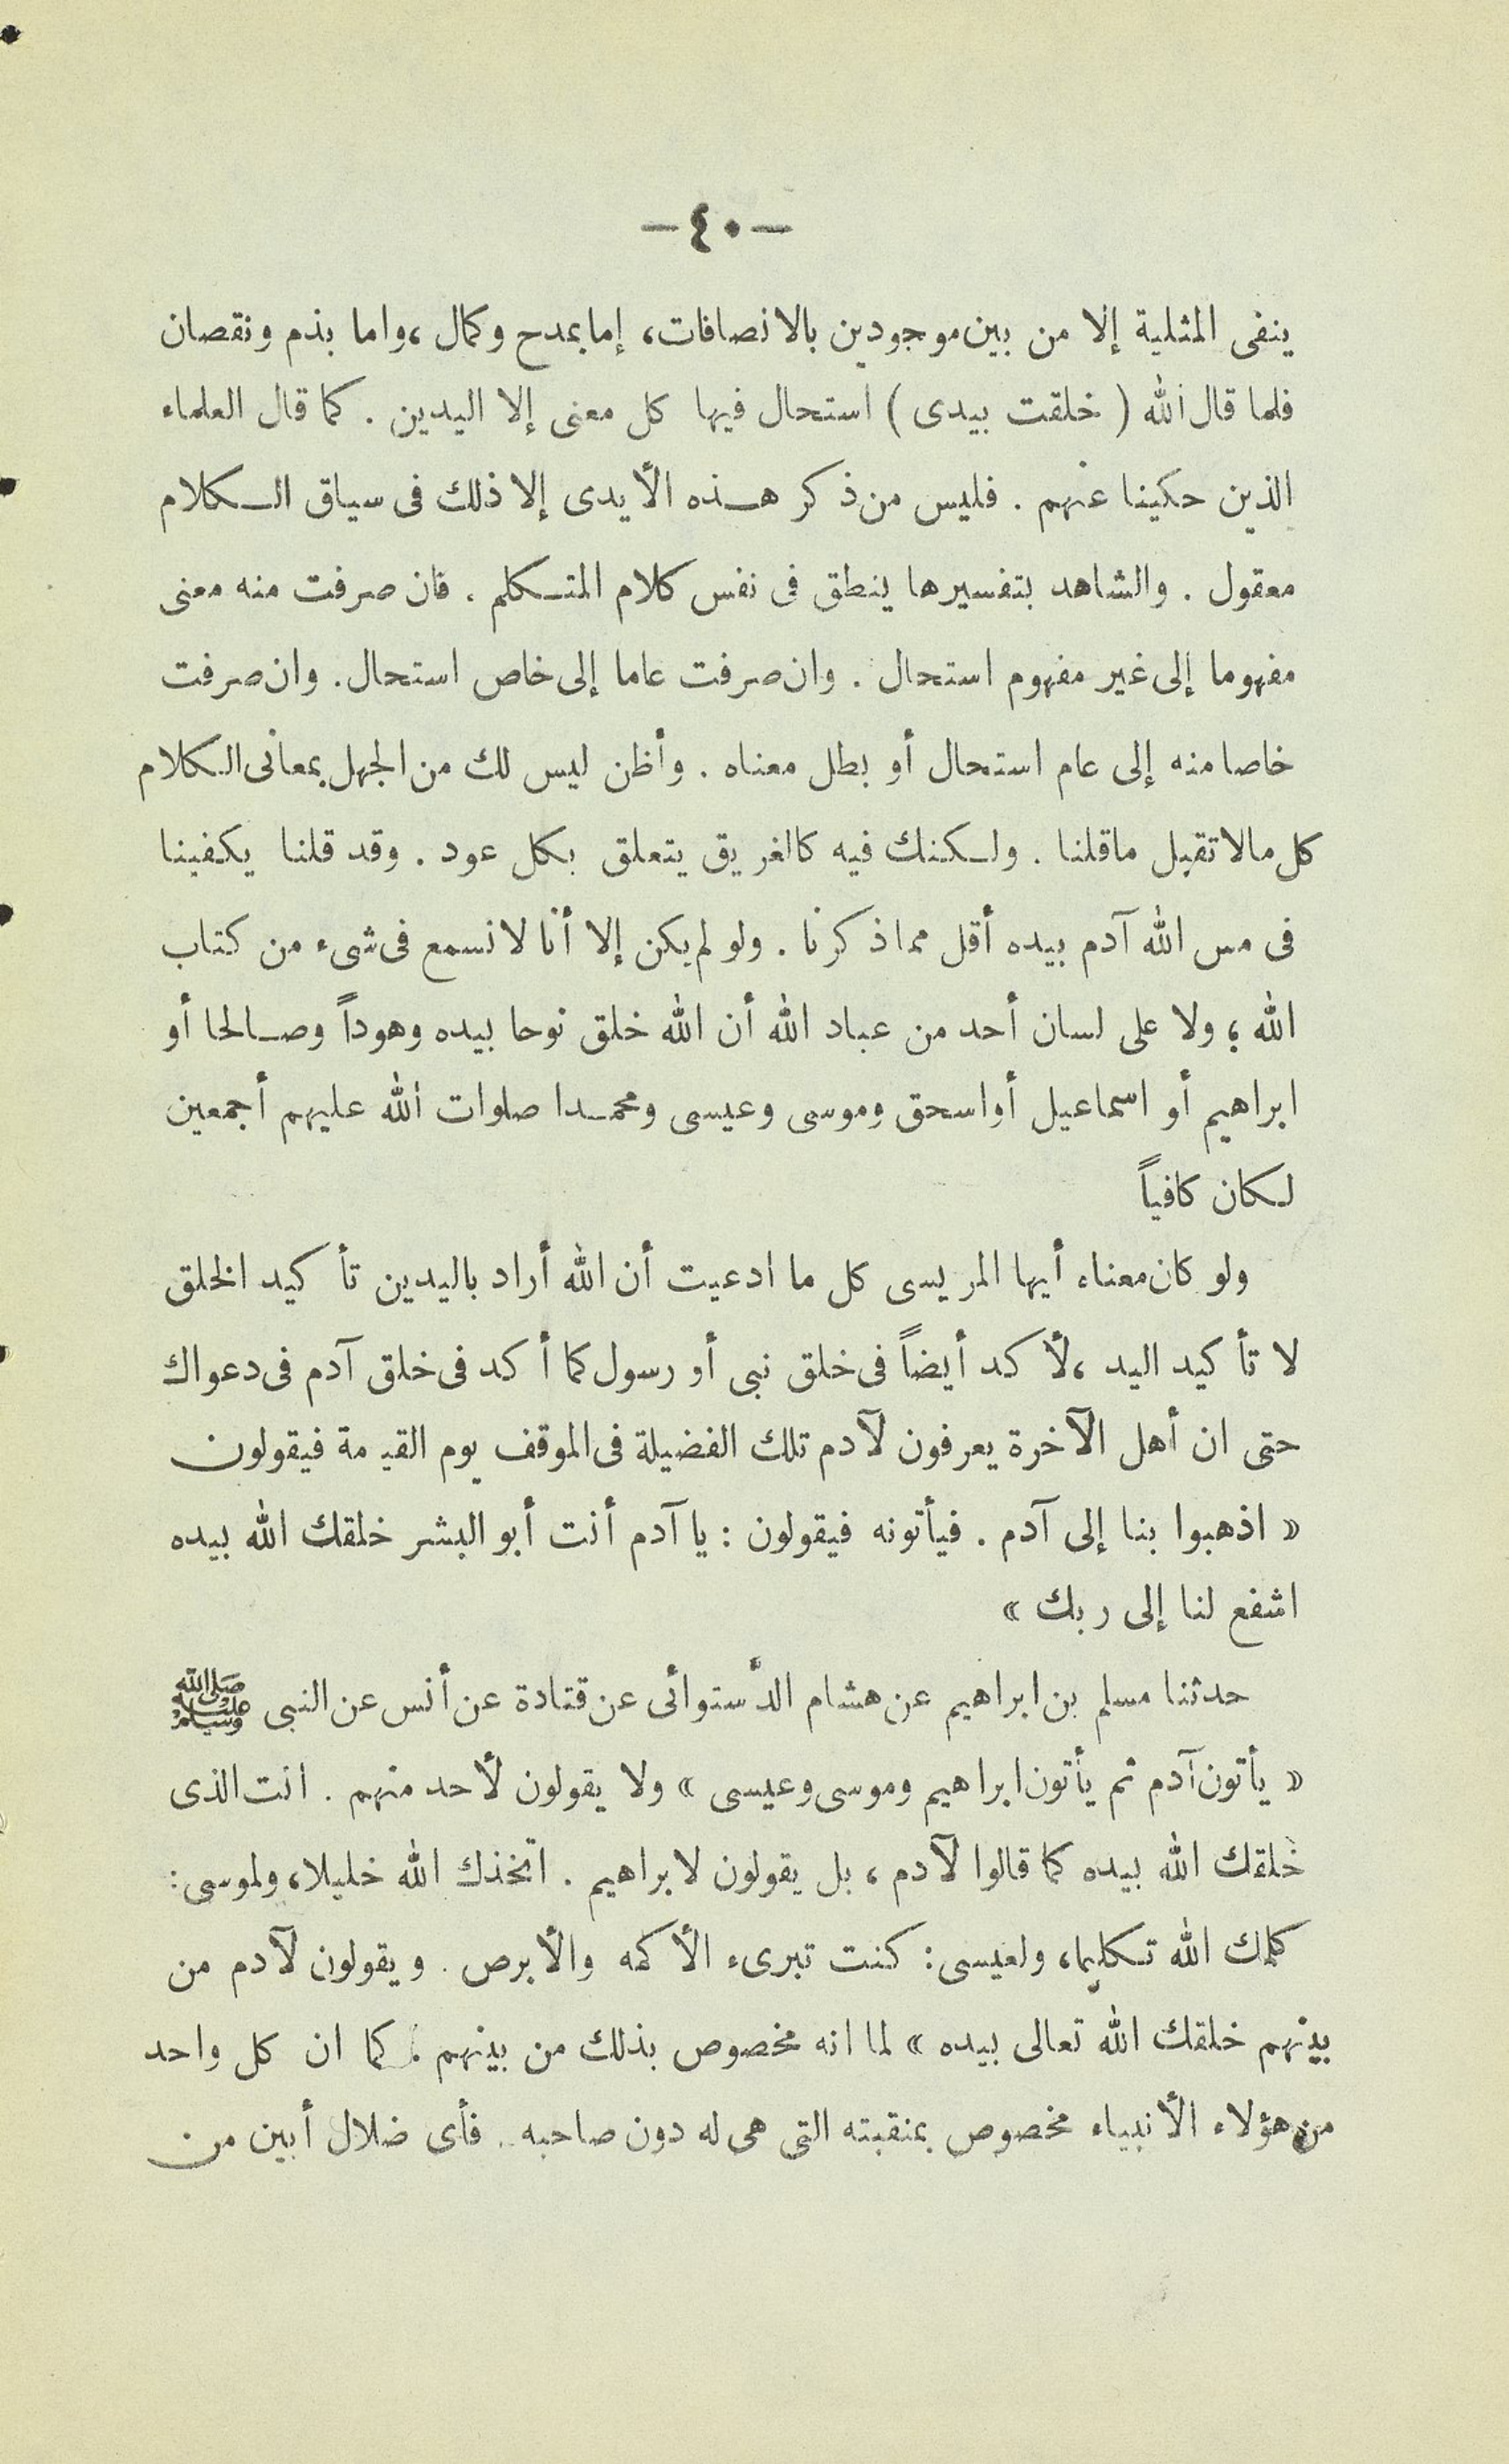 -٤٠-
ينفى المثلية إلا من بين موجودين بالانصافات، إما بمدح وكمال، واما بذم ونقصان
فلما قال الله ( خلقت بيدى ) استحال فيها كل معنى إلا اليدين . كما قال العلماء
الذين حكينا عنهم . فليس من ذكر هذه الأيدى إلا ذلك فى سياق الكلام
معقول . والشاهد بتفسيرها ينطق فى نفس كلام المتكلم . فان صرفت منه معنى
مفهوما إلى غير مفهوم استحال . وان صرفت عاما إلى خاص استحال. وان صرفت
خاصا منه إلى عام استحال أو بطل معناه . وأظن ليس لك من الجهل بمعانى الكلام
كل مالا تقبل ماقلنا . ولكنك فيه كالغريق يتعلق بكل عود . وقد قلنا يكفينا
فى مس الله آدم بيده أقل مماذكرنا . ولو لم يكن إلا أنا لا نسمع فى شىء من كتاب
الله ؛ ولا على لسان أحد من عباد الله أن الله خلق نوحا بيده وهوداً وصالحا أو
ابراهيم أو اسماعيل أو اسحق وموسى وعيسى ومحمدا صلوات الله عليهم أجمعين
لكان كافياً
ولو كان معناه أيها المريسى كل ما ادعيت أن الله أراد باليدين تأكيد الخلق
لا تأكيد اليد ، لأكد أيضاً فى خلق نبى أو رسول كما أكد فى خلق آدم فى دعواك
حتى ان أهل الآخرة يعرفون لآدم تلك الفضيلة فى الموقف يوم القيمة فيقولون
« اذهبوا بنا إلى آدم . فيأتونه فيقولون : يا آدم أنت أبو البشر خلقك الله بيده
اشفع لنا إلى ربك »
حدثنا مسلم بن ابراهيم عن هشام الدستوائى عن قتادة عن أنس عن النبى ﷺ
« يأتون آدم ثم يأتون ابراهيم وموسى وعيسى » ولا يقولون لأحد منهم . انت الذى
خلقك الله بيده كما قالوا لآدم ، بل يقولون لابراهيم . اتخذك الله خليلا، ولموسى:
كلمك الله تكليما، ولعيسى: كنت تبرىء الأكمه والأبرص . ويقولون لآدم من
بينهم خلقك الله تعالى بيده » لما انه مخصوص بذلك من بينهم . كما ان كل واحد
من هؤلاء الأنبياء مخصوص بمنقبته التى هى له دون صاحبه . فأى ضلال أبين من